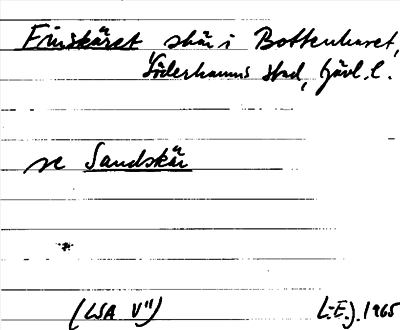 Finskäret skär i Bottenhavet,
Söderhamns stad, Gävl. l.
se Sandskär
(LSA V")
L.E.J. 1965